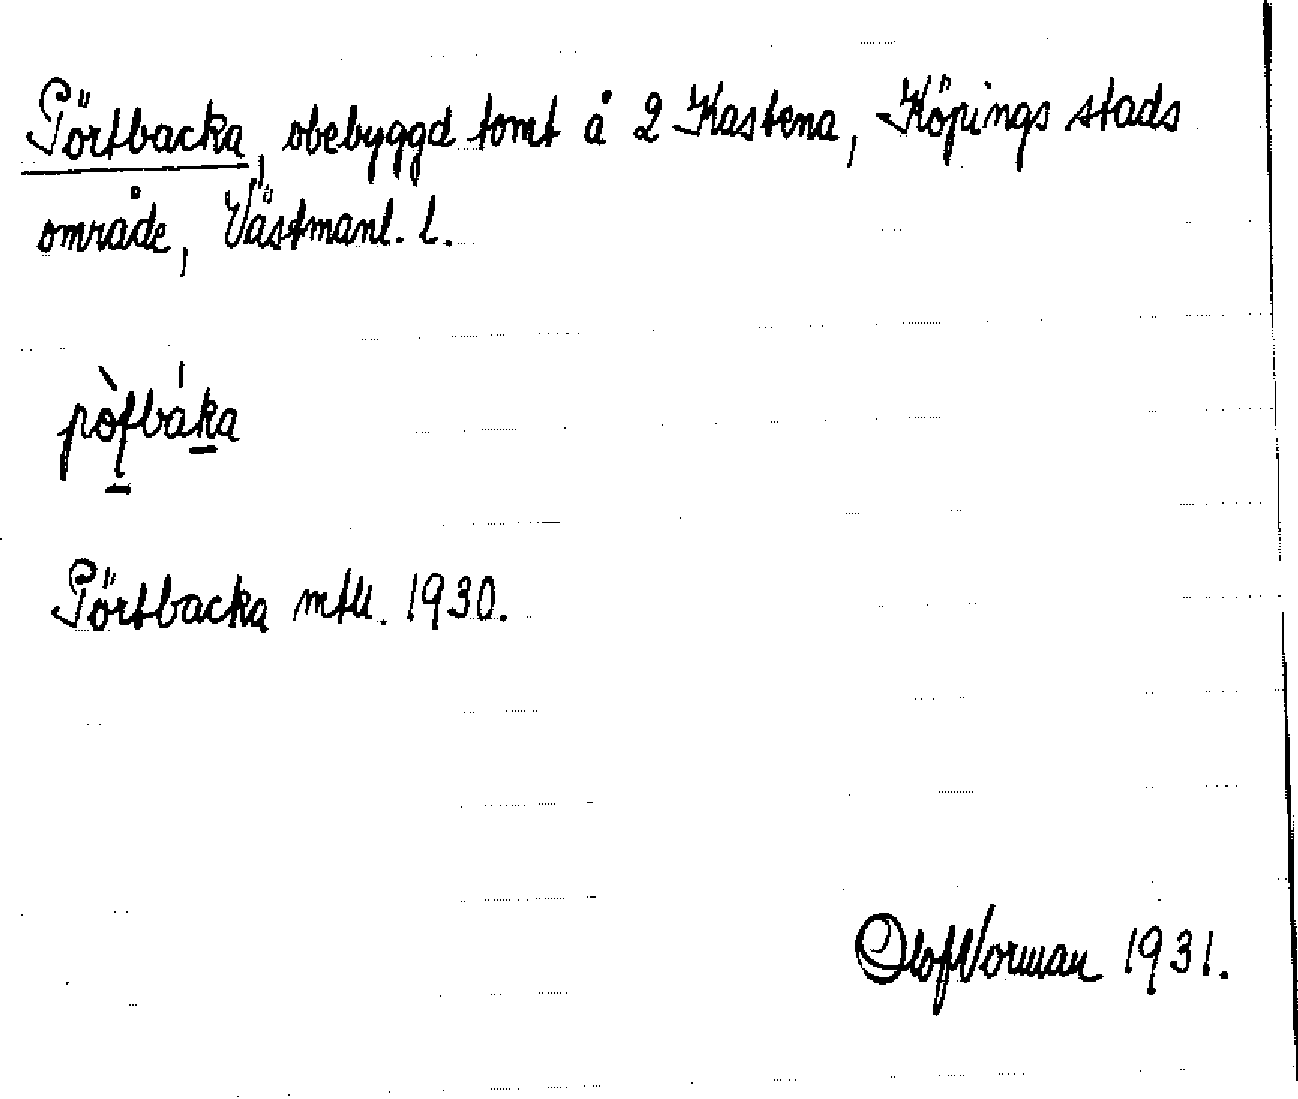 Pörtbacka, obebyggd tomt å 2 Kastena, Köpings stads
område, Västmanl. l.
Pörtbacka mtll. 1930.
Olof Norman 1931.